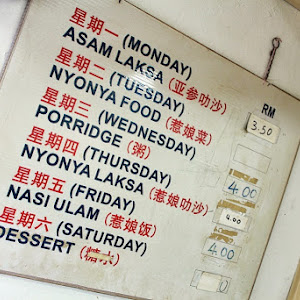 星期一 (MONDAY)
ASAM LAKSA (亚参叻沙)
星期二 (TUESDAY)
NYONYA FOOD (惹娘菜)
星期三 (WEDNESDAY)
PORRIDGE (粥)
星期四 (THURSDAY)
NYONYA LAKSA (惹娘叻沙)
星期五 (FRIDAY)
NASI ULAM (惹娘饭)
星期六 (SATURDAY)
DESSERT (糖水)
RM
3.50
4.00
4.00
4.00